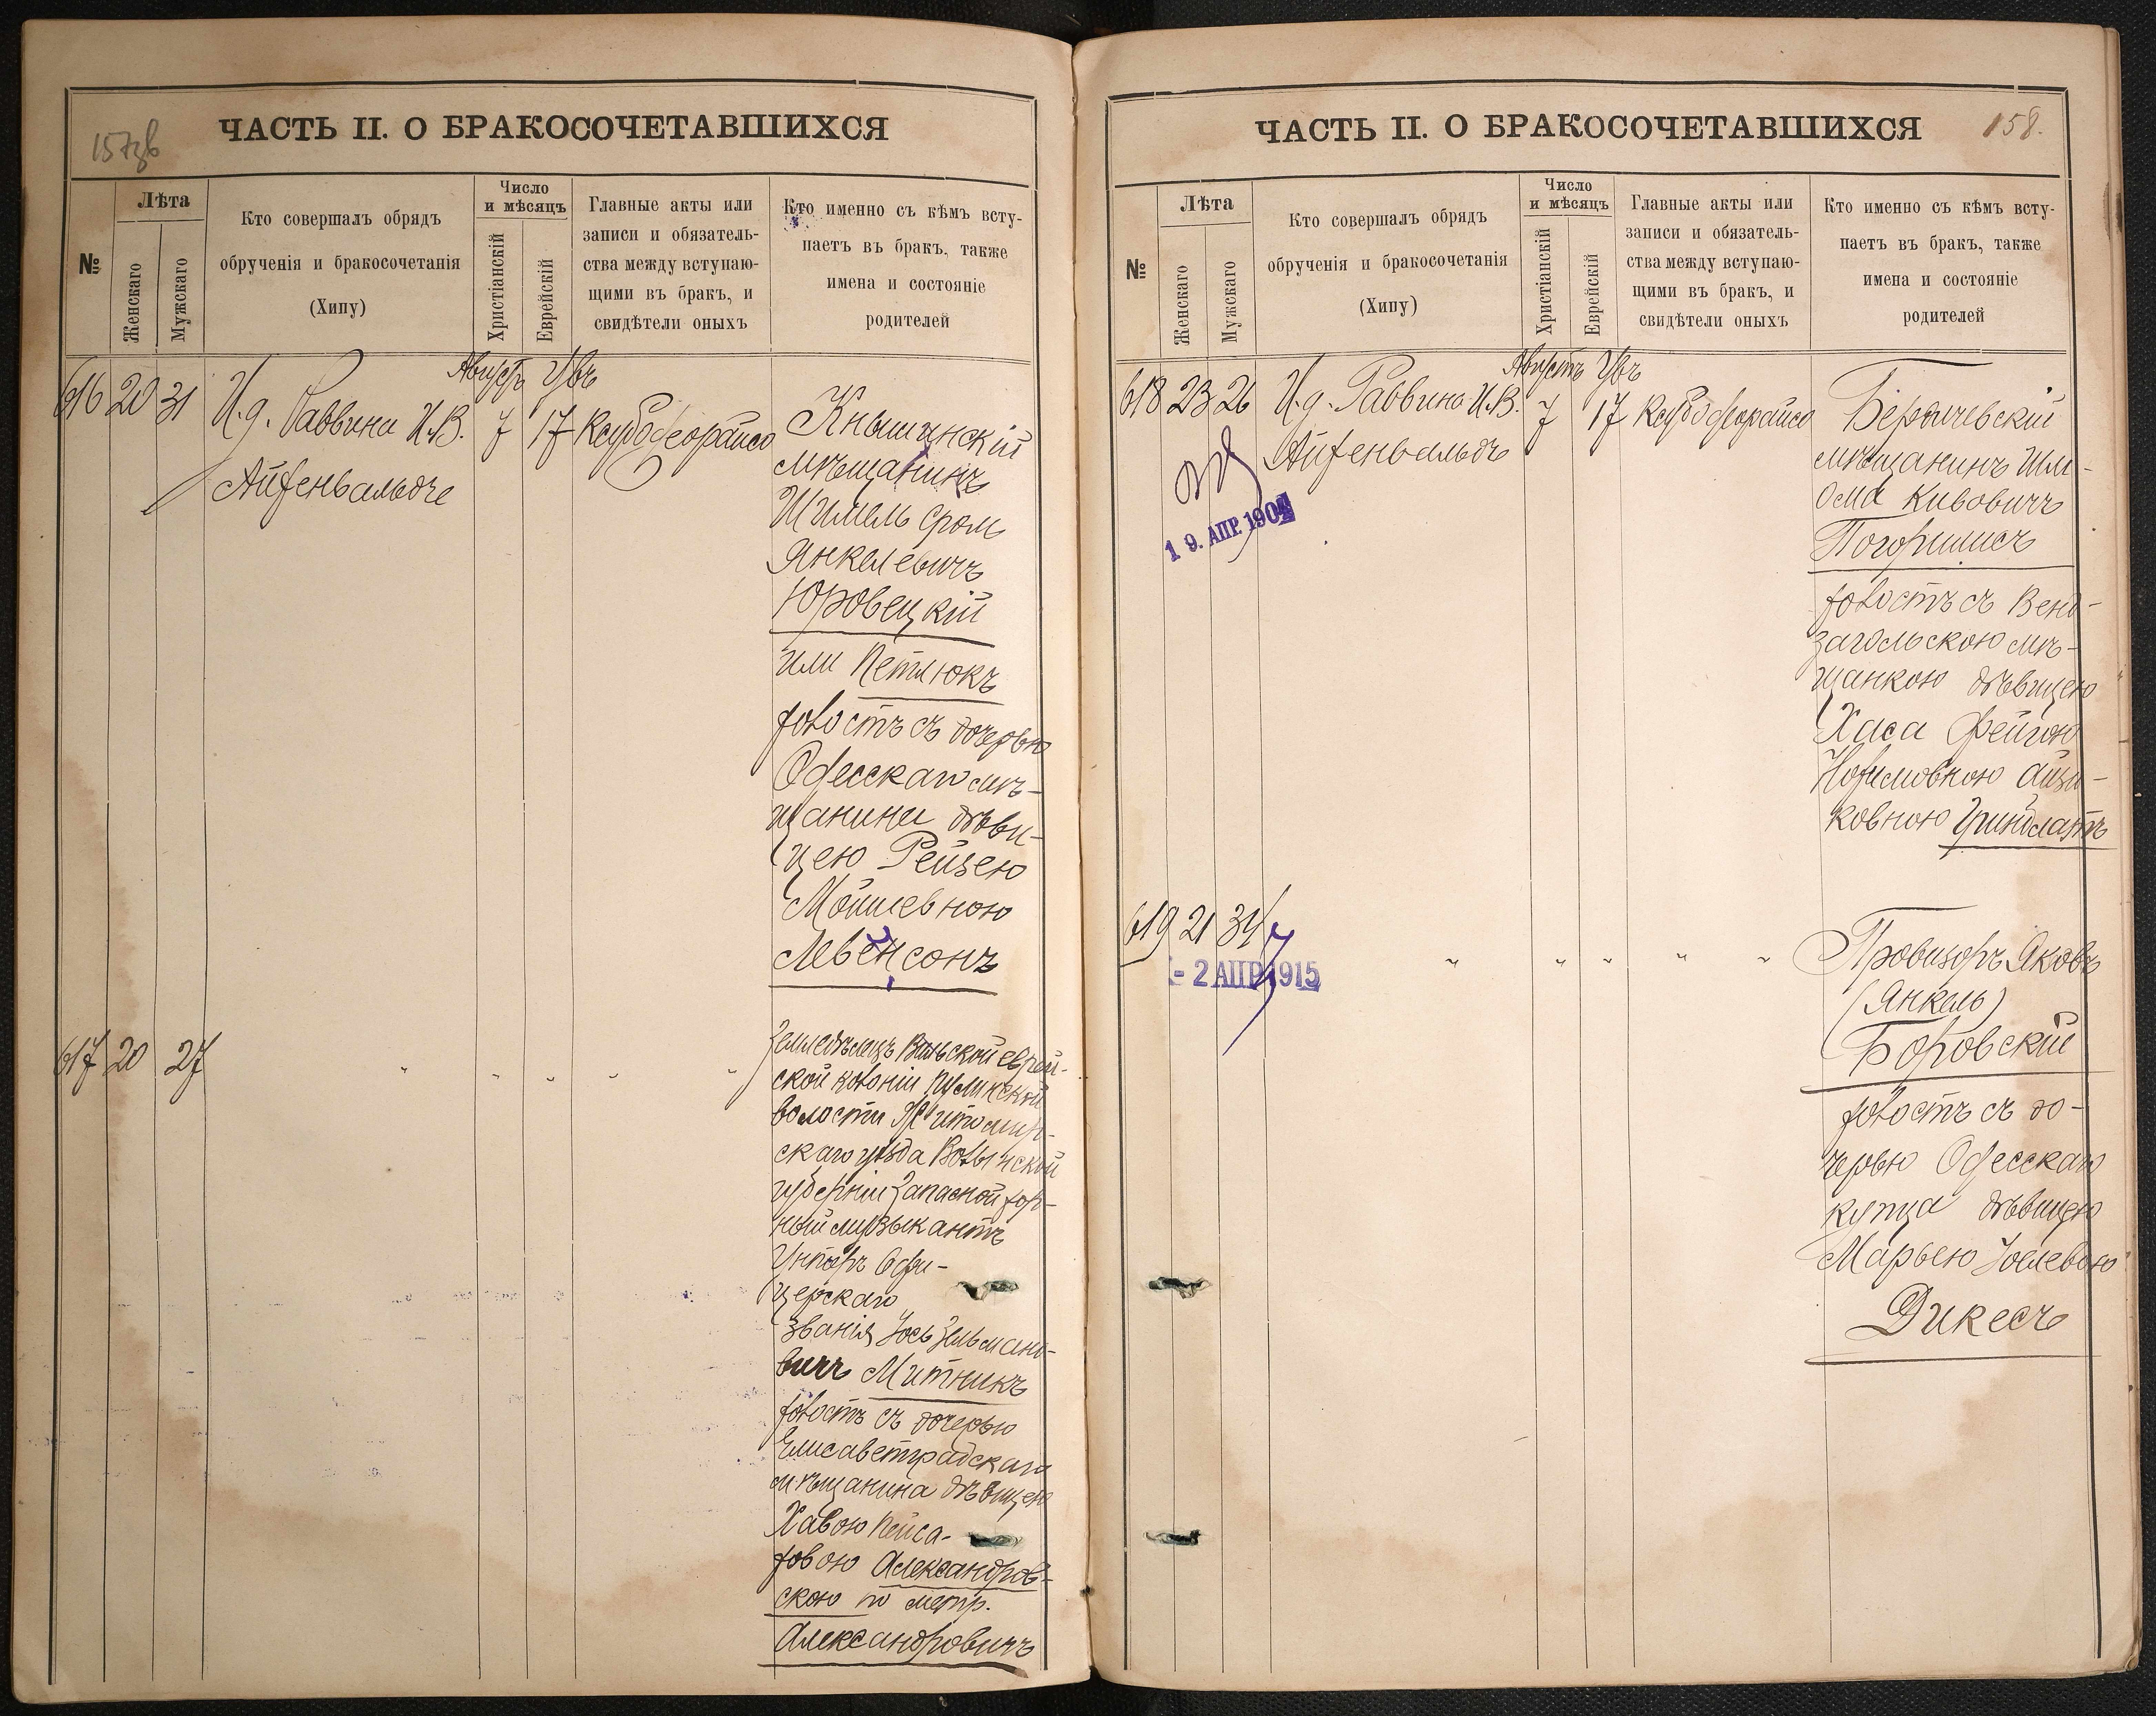 ЧАСТЬ II. О БРАКОСОЧЕТАВШИХСЯ
№
Лѣта
Женскаго
Мужскаго
Кто совершалъ обрядъ
обрученія и бракосочетанія
(Хипу)
Число
и мѣсяцъ
Христіанскій
Еврейскій
Главные акты или
записи и обязатель-
ства между вступаю-
щими въ бракъ, и
свидѣтели оныхъ
Кто именно съ кѣмъ всту-
паетъ въ бракъ, также
имена и состояніе
родителей
616 20 31
И.д. Раввина И.В.
Айзенвальдъ
Августъ
7 17
Кнышинскій
мѣщанинъ
Шимель Сроль
Янкелевичъ
Юровецкій
или Петлюкъ
холостъ съ дочерью
Одесскаго мѣ-
щанина дѣви-
цею Рейзею
Мойшевною
Левенсонъ
617 20 27
Земледѣлецъ Вильской еврей-
ской колоніи Пулинской
волости Житомир-
скаго уѣзда Волынской
губерніи Запасной
музыкантъ
Унтеръ Офи-
церскаго
званія Іось Зельмано-
вичъ Митникъ
холостъ съ дочерью
Елисаветградскаго
мѣщанина дѣвицею
Хавою Пейса-
ховою Александров-
скою по метр.
Александровичъ
ЧАСТЬ II. О БРАКОСОЧЕТАВШИХСЯ
158.
№
Лѣта
Женскаго
Мужскаго
Кто совершалъ обрядъ
обрученія и бракосочетанія
(Хипу)
Число
и мѣсяцъ
Христіанскій
Еврейскій
Главные акты или
записи и обязатель-
ства между вступаю-
щими въ бракъ, и
свидѣтели оныхъ
Кто именно съ кѣмъ всту-
паетъ въ бракъ, также
имена и состояніе
родителей
618 23 26
И.д. Раввина И.В.
Айзенвальдъ
Августъ
7 17
19. АПР. 190
Бердичевскій
мѣщанинъ Шл-
ома Кивовичъ
холостъ съ Венд-
загольскою мѣ-
щанкою дѣвицею
Хаса Фейгою
Айзи-
ковною Гринблатъ
619 21 34
- 2 АПР 1915
Провизоръ Яковъ
(Янкель)
Боровскій
холостъ съ до-
черью Одесскаго
купца дѣвицею
Марьею Іоселевою
Дикесъ